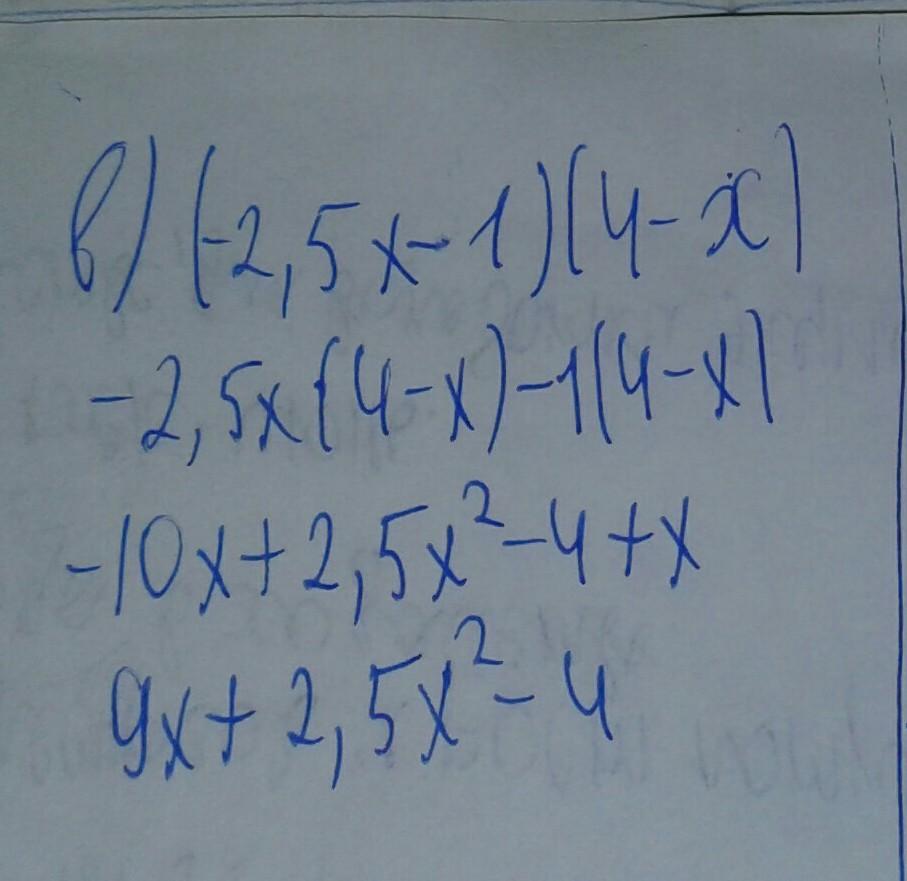 в) (-2,5x-1)(4-x)
-2,5x(4-x)-1(4-x)
-10x+2,5x²-4+x
9x+2,5x²-4